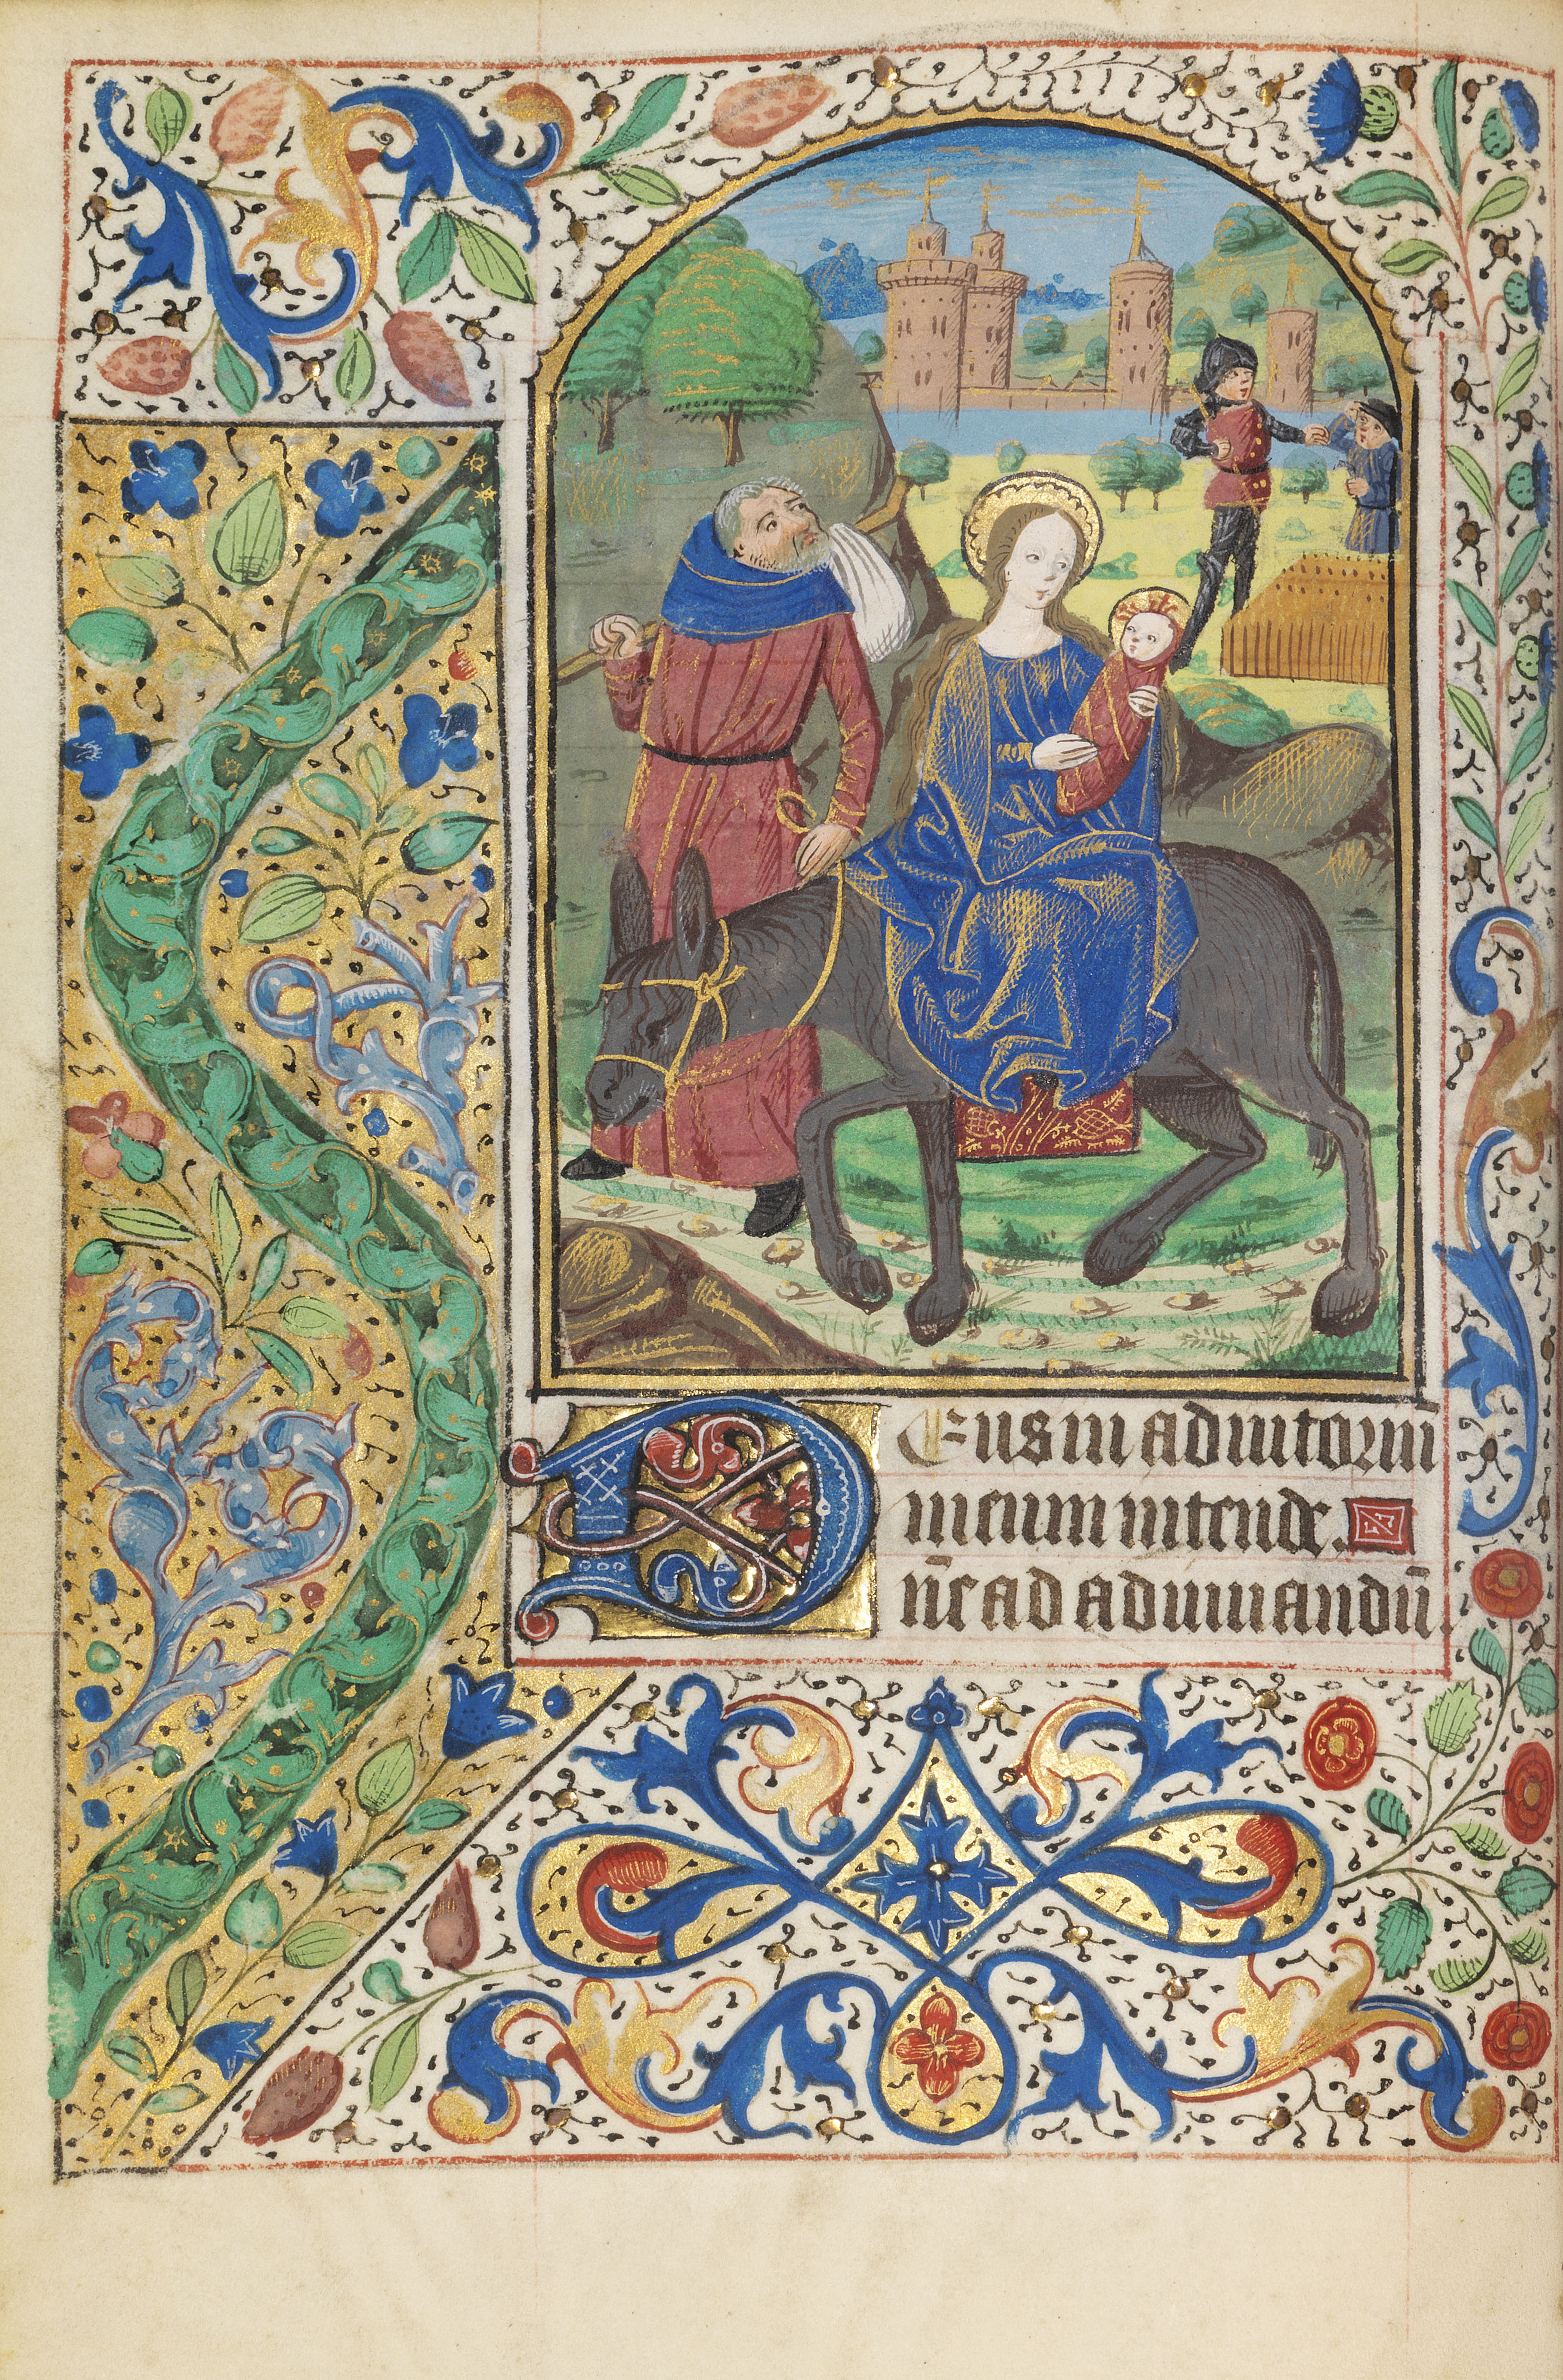 Deus in adiutoriū
meum intende.
ne ad adiuuandū